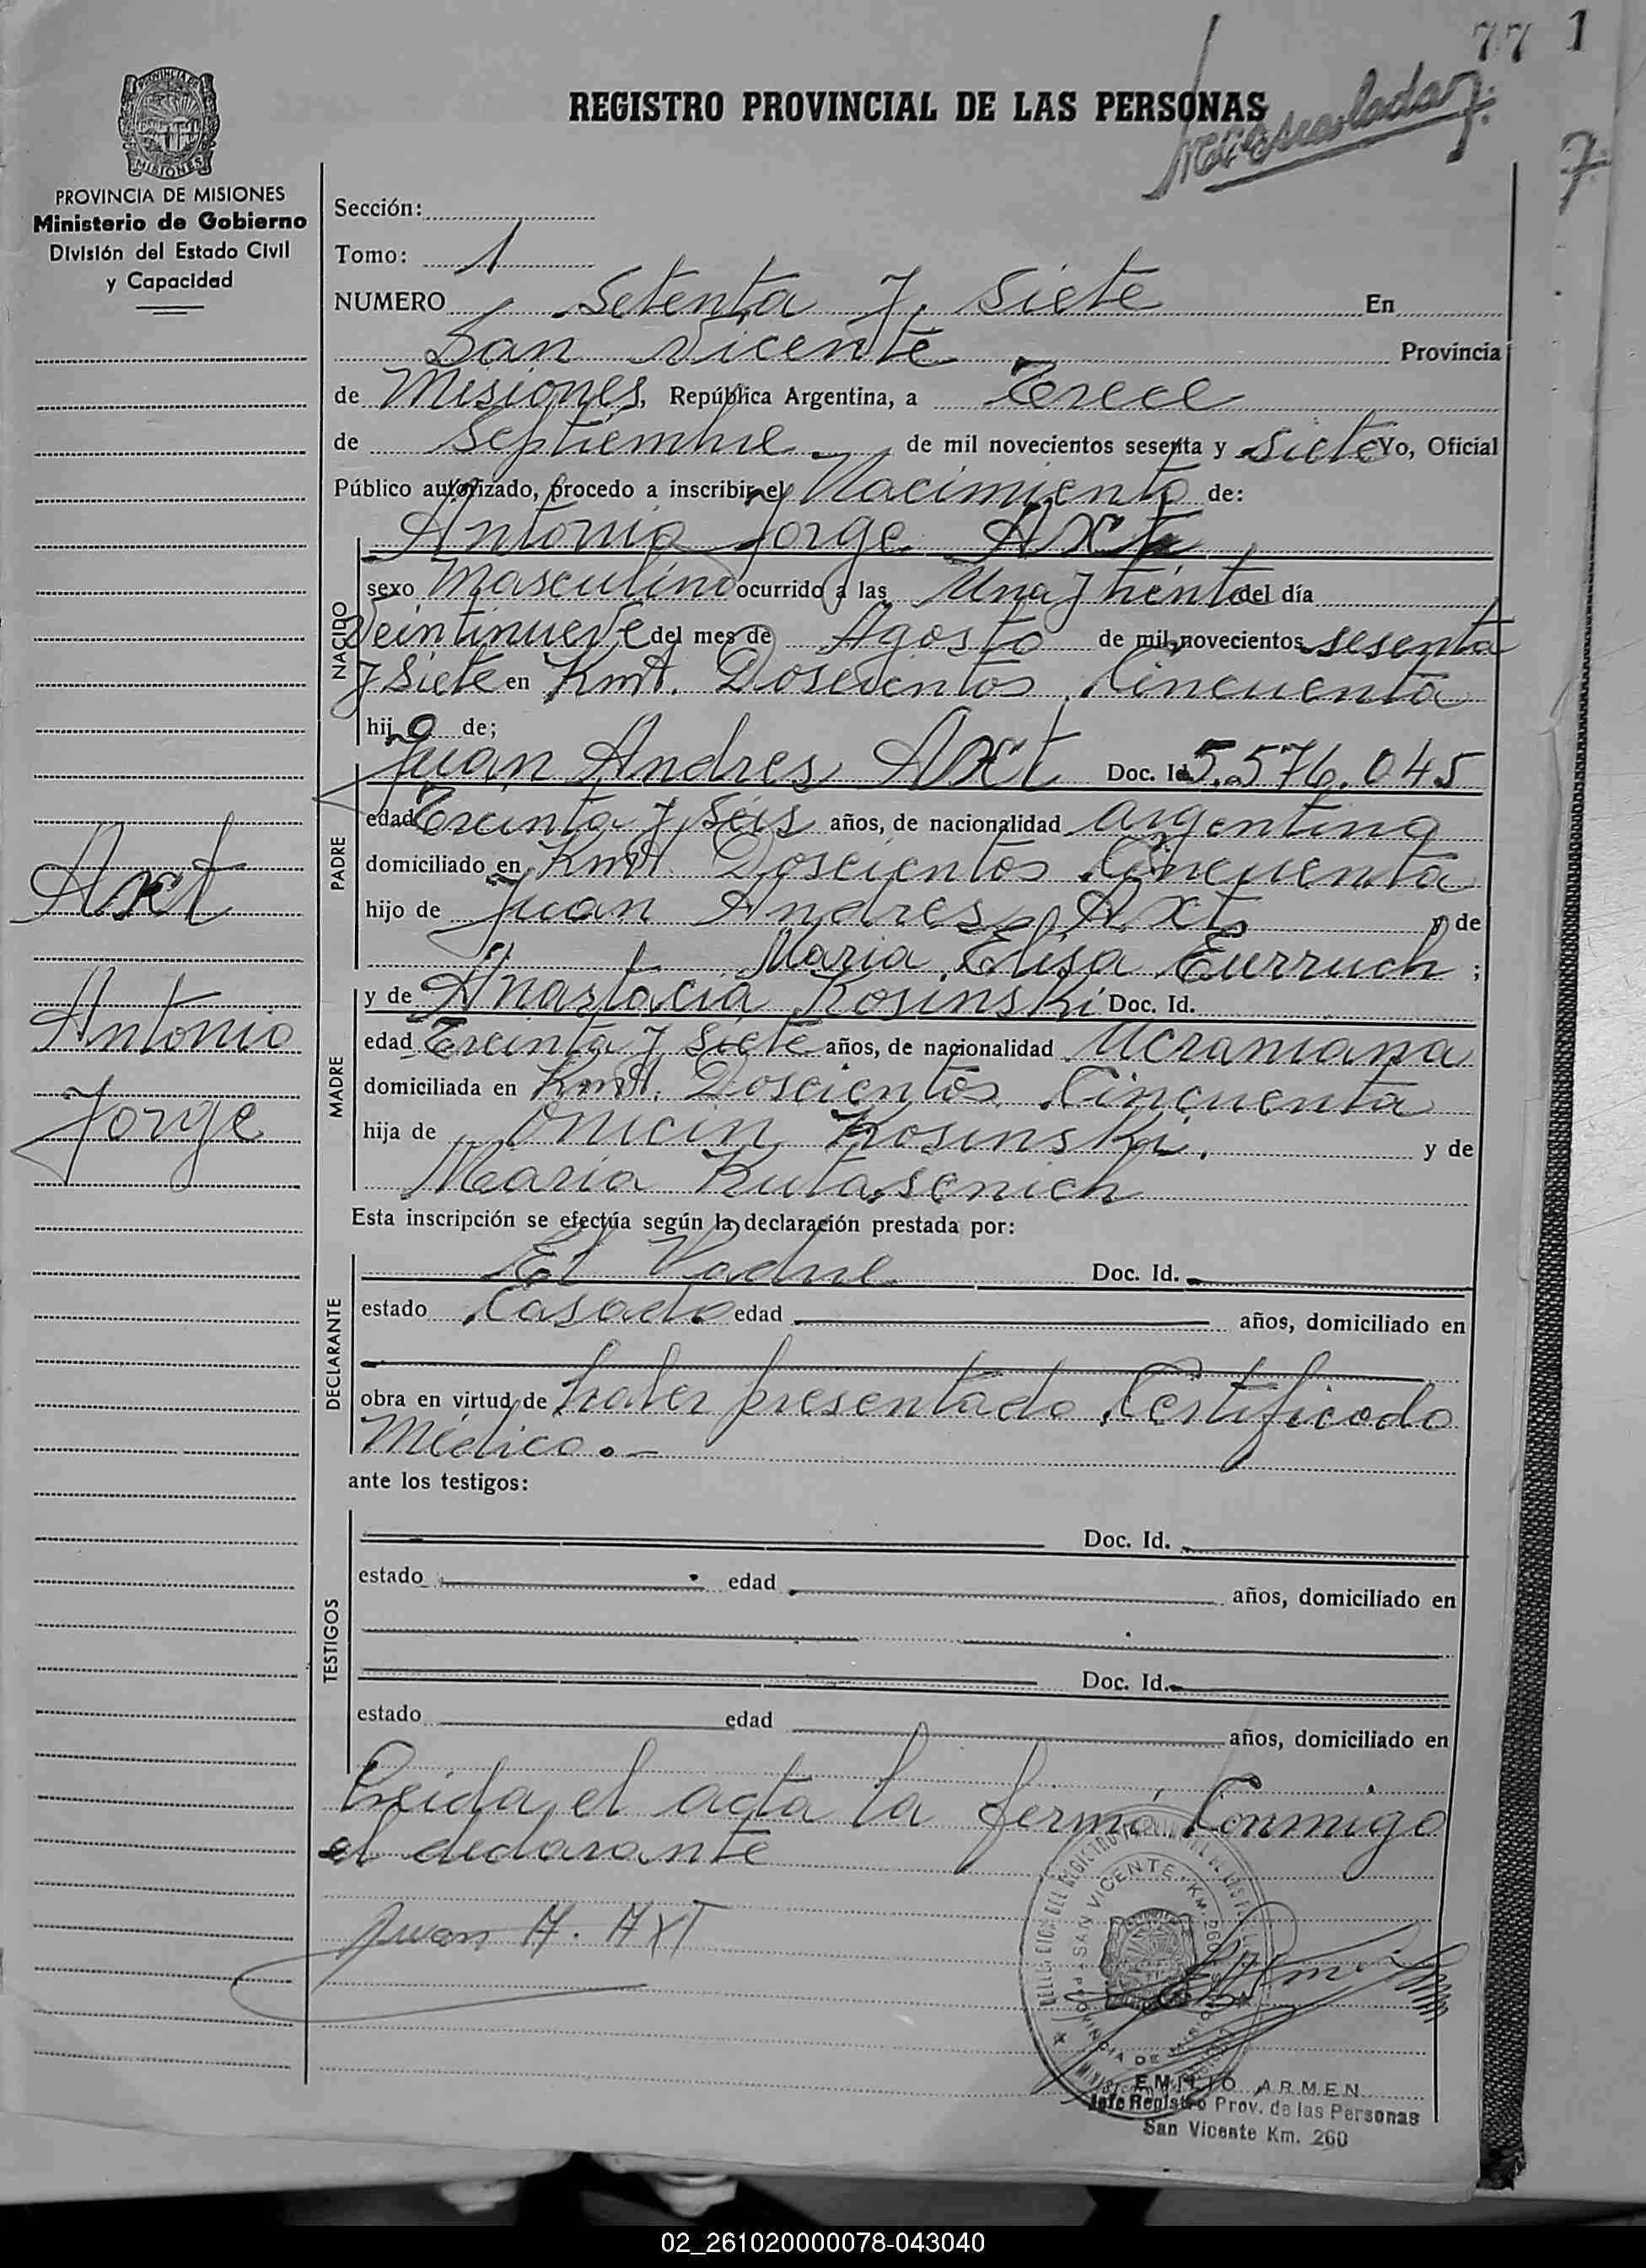 77 1
REGISTRO PROVINCIAL DE LAS PERSONAS
7
PROVINCIA DE MISIONES
MISIONES
PROVINCIA DE MISIONES
Ministerio de Gobierno
División del Estado Civil
y Capacidad
Axt
Antonio
Jorge
Sección:
Tomo: 1
NUMERO Setenta y Siete En
San Vicente Provincia
de Misiones, República Argentina, a Trece
de Septiembre de mil novecientos sesenta y siete Yo, Oficial
Público autorizado, procedo a inscribir el Nacimiento de:
Antonio Jorge Axt
NACIDO
sexo Masculino ocurrido a las Una y treinta del día
Veintinueve del mes de Agosto de mil novecientos sesenta
y Siete en Kmt. Doscientos Cincuenta
hijo de;
PADRE
Juan Andres Axt Doc. Id. 5.576.045
edad Treinta y seis años, de nacionalidad argentina
domiciliado en Kmt. Doscientos Cincuenta
hijo de Juan Andres Axt y de
Maria Elisa Eurruch ;
MADRE
y de Anastacia Kosinski Doc. Id.
edad Treinta y Siete años, de nacionalidad Ucraniana
domiciliada en Kmt. Doscientos Cincuenta
hija de Kosinski. y de
Maria Kutasenich
Esta inscripción se efectúa según la declaración prestada por:
DECLARANTE
El Padre Doc. Id.
estado Casado edad años, domiciliado en
obra en virtud de haber presentado Certificado
Médico.-
ante los testigos:
TESTIGOS
Doc. Id.
estado edad años, domiciliado en
Doc. Id.
estado edad años, domiciliado en
Leida el acta la firmó Conmigo
el declarante
Juan A. AXT
SAN VICENTE KM.
PROVINCIA DE MISIONES
EMILIO ARMEN
Jefe Registro Prov. de las Personas
San Vicente Km. 260
02_261020000078-043040